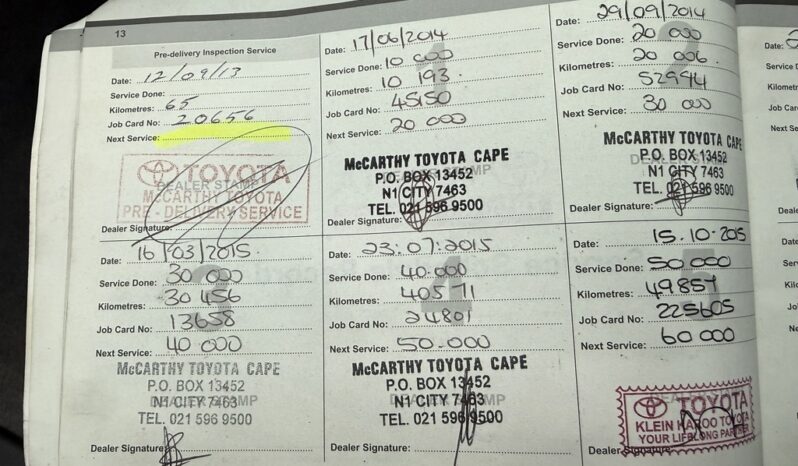 13
Pre-delivery Inspection Service
Date: 12/09/13
Service Done:
Kilometres: 65
Job Card No: 20656
Next Service:
TOYOTA
DEALER STAMP
McCARTHY TOYOTA
PRE - DELIVERY SERVICE
Dealer Signature:
Date: 17/06/2014
Service Done: 10 000
Kilometres: 10 193.
Job Card No: 45150
Next Service: 20 000
McCARTHY TOYOTA CAPE
P.O. BOX 13452
N1 CITY 7463
TEL. 021 596 9500
Dealer Signature:
Date: 29/09/2014
Service Done: 20 000
Kilometres: 20 006.
Job Card No: 52994
Next Service: 30 000
McCARTHY TOYOTA CAPE
DEALER STAMP
P.O. BOX 13452
N1 CITY 7463
TEL. 021 596 9500
Dealer Signature:
Date: 16/03/2015
Service Done: 30 000
Kilometres: 30 456
Job Card No: 13658
Next Service: 40 000
McCARTHY TOYOTA CAPE
P.O. BOX 13452
DEALER STAMP
N1 CITY 7463
TEL. 021 596 9500
Dealer Signature:
Date: 23.07.2015
Service Done: 40.000
Kilometres: 40571
Job Card No: 24801
Next Service: 50.000
McCARTHY TOYOTA CAPE
P.O. BOX 13452
DEALER STAMP
N1 CITY 7463
TEL. 021 596 9500
Dealer Signature:
Date: 15.10.2015
Service Done: 50000
Kilometres: 49857
Job Card No: 225605
Next Service: 60 000
TOYOTA
KLEIN KAROO TOYOTA
YOUR LIFELONG PARTNER
Dealer Signature:
Date:
Service
Kilomet
Job Car
Next Se
Dealer